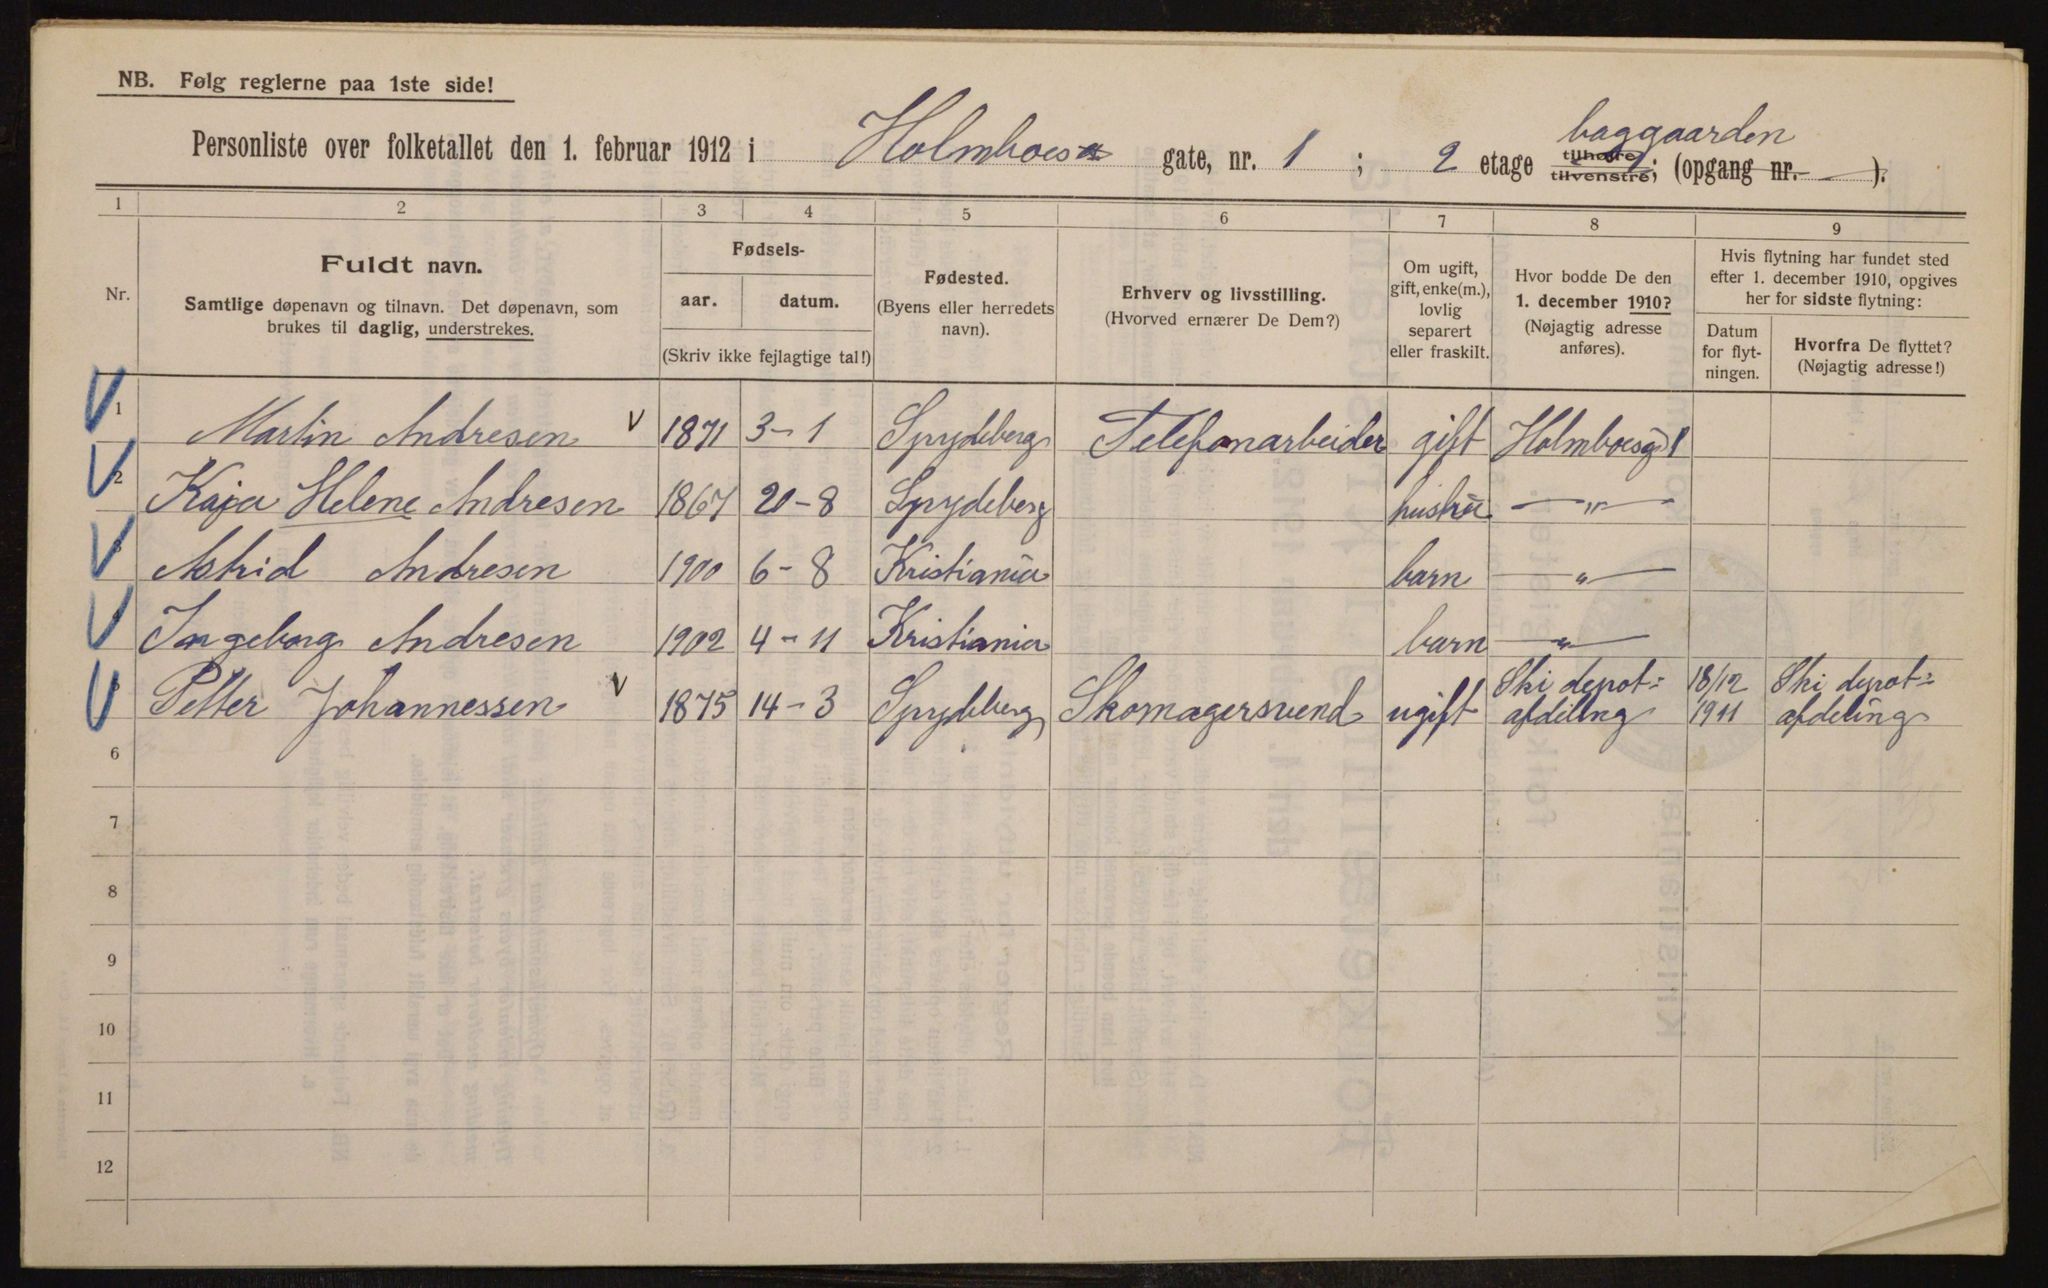 NB. Følg reglerne paa 1ste side!
Personliste over folketallet den 1. februar 1912 i Holmboes gate, nr. 1 ; 2 etage baggaarden tilhøire, tilvenstre; (opgang nr. — ).
1 2 3 4 5 6 7 8 9
Nr.
Fuldt navn.
Samtlige døpenavn og tilnavn. Det døpenavn, som
brukes til daglig, understrekes.
Fødsels-
aar. datum.
(Skriv ikke fejlagtige tal!)
Fødested.
(Byens eller herredets
navn).
Erhverv og livsstilling.
(Hvorved ernærer De Dem?)
Om ugift,
gift, enke(m.),
lovlig
separert
eller fraskilt.
Hvor bodde De den
1. december 1910?
(Nøjagtig adresse
anføres).
Hvis flytning har fundet sted
efter 1. december 1910, opgives
her for sidste flytning:
Datum
for flyt-
ningen.
Hvorfra De flyttet?
(Nøjagtig adresse!)
1 Martin Andresen v 1871 3-1 Spydeberg Telefonarbeider gift Holmboesg 1
2 Kaja Helene Andresen 1867 20-8 Spydeberg hustru — „ —
3 Astrid Andresen 1900 6-8 Kristiania barn — „ —
Ingeborg Andresen 1902 4-11 Kristiania barn — „ —
Petter Johannessen v 1875 14-3 Spydeberg Skomagersvend ugift Ski depot- 18/12 Ski depot-
afdeling 1911 afdeling
6
7
8
9
10
11
12